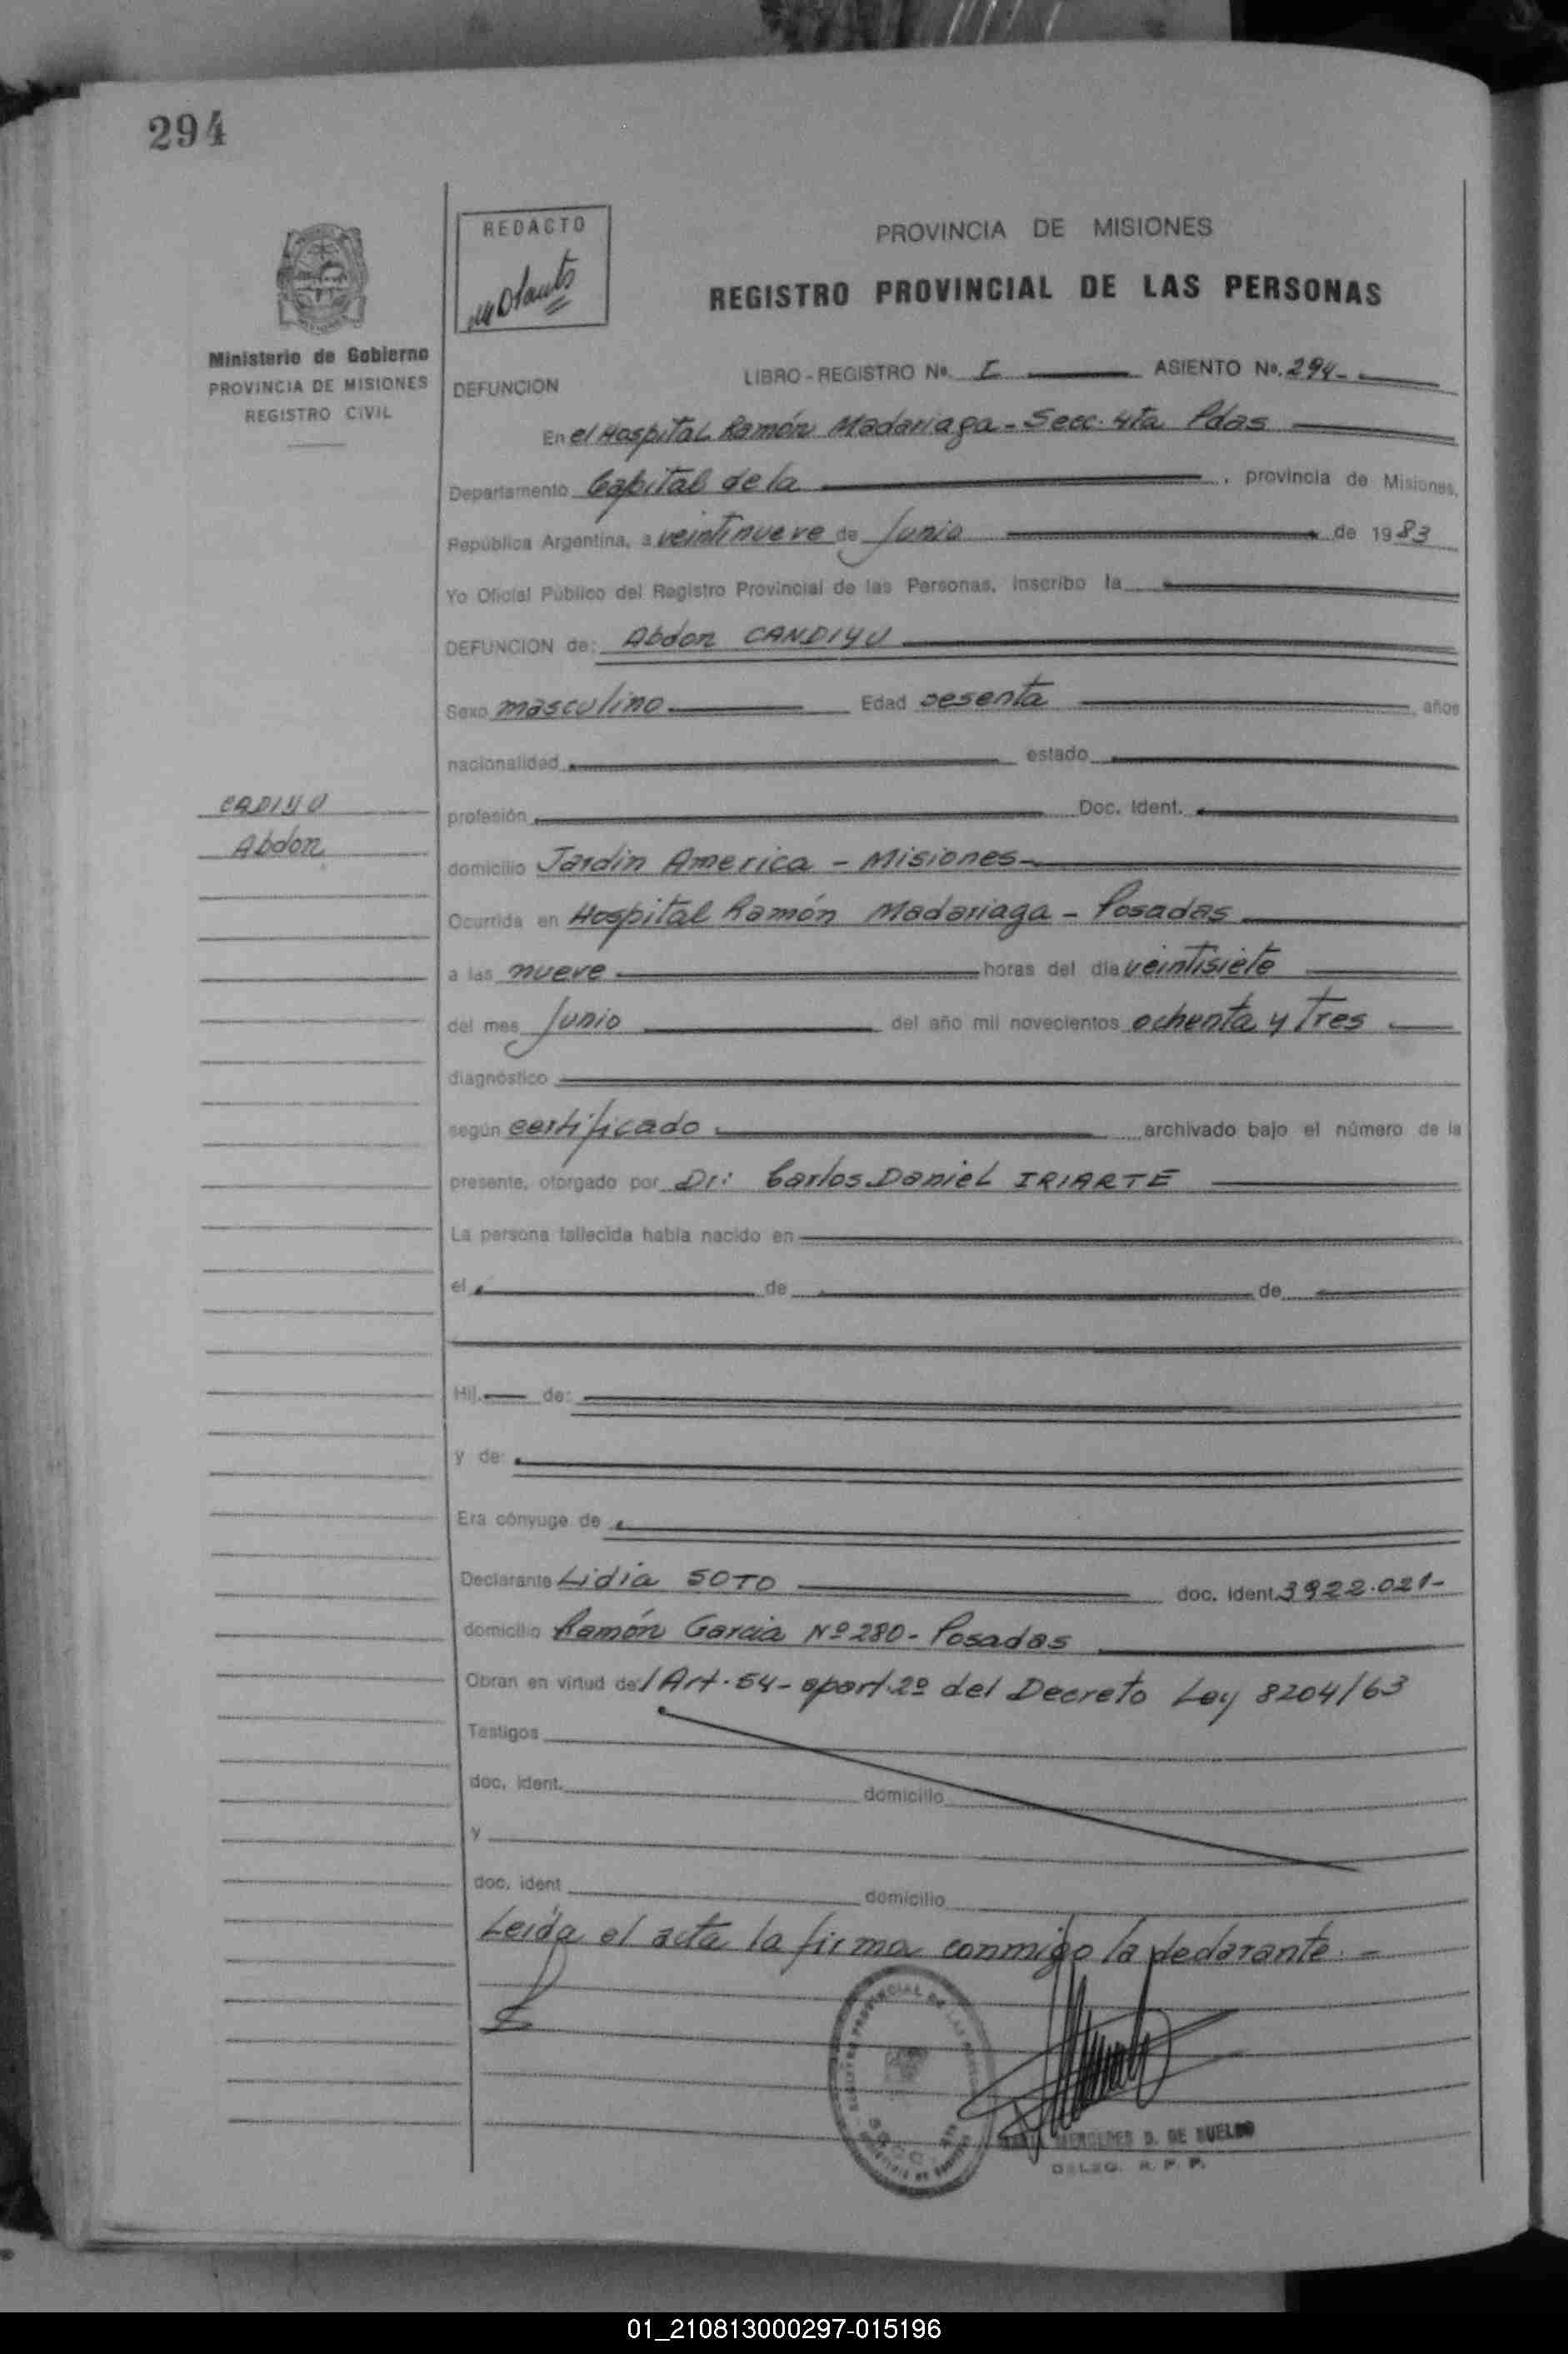 294
REDACTO
PROVINCIA DE MISIONES
REGISTRO PROVINCIAL DE LAS PERSONAS
Ministerio de Gobierno
PROVINCIA DE MISIONES
REGISTRO CIVIL
DEFUNCION
LIBRO - REGISTRO Nº. I ASIENTO Nº. 294-
En el Hospital Ramón Madariaga - Secc. 4ta Pdas
Departamento Capital de la , provincia de Misiones,
República Argentina, a veintinueve de Junio de 1983
Yo Oficial Público del Registro Provincial de las Personas, inscribo la
DEFUNCION de: Abdon CANDIYU
Sexo masculino Edad sesenta años
nacionalidad estado
CADIYU
Abdon
profesión Doc. Ident.
domicilio Jardin America - Misiones-
Ocurrida en Hospital Ramón Madariaga - Posadas
a las nueve horas del día veintisiete
del mes Junio del año mil novecientos ochenta y Tres
diagnóstico
según certificado archivado bajo el número de la
presente, otorgado por Dr: Carlos Daniel IRIARTE
La persona fallecida había nacido en
el de de
Hij. de:
y de:
Era cónyuge de
Declarante Lidia SOTO doc. ident. 3922.021-
domicilio Ramón Garcia Nº 280 - Posadas
Obran en virtud del Art. 54 - apart. 2º del Decreto Ley 8204/63
Testigos
doc. ident. domicilio
y
doc. ident domicilio
Leída el acta la firma conmigo la declarante. -
MERCEDES D. DE
DELEG. R. P. P.
01_210813000297-015196